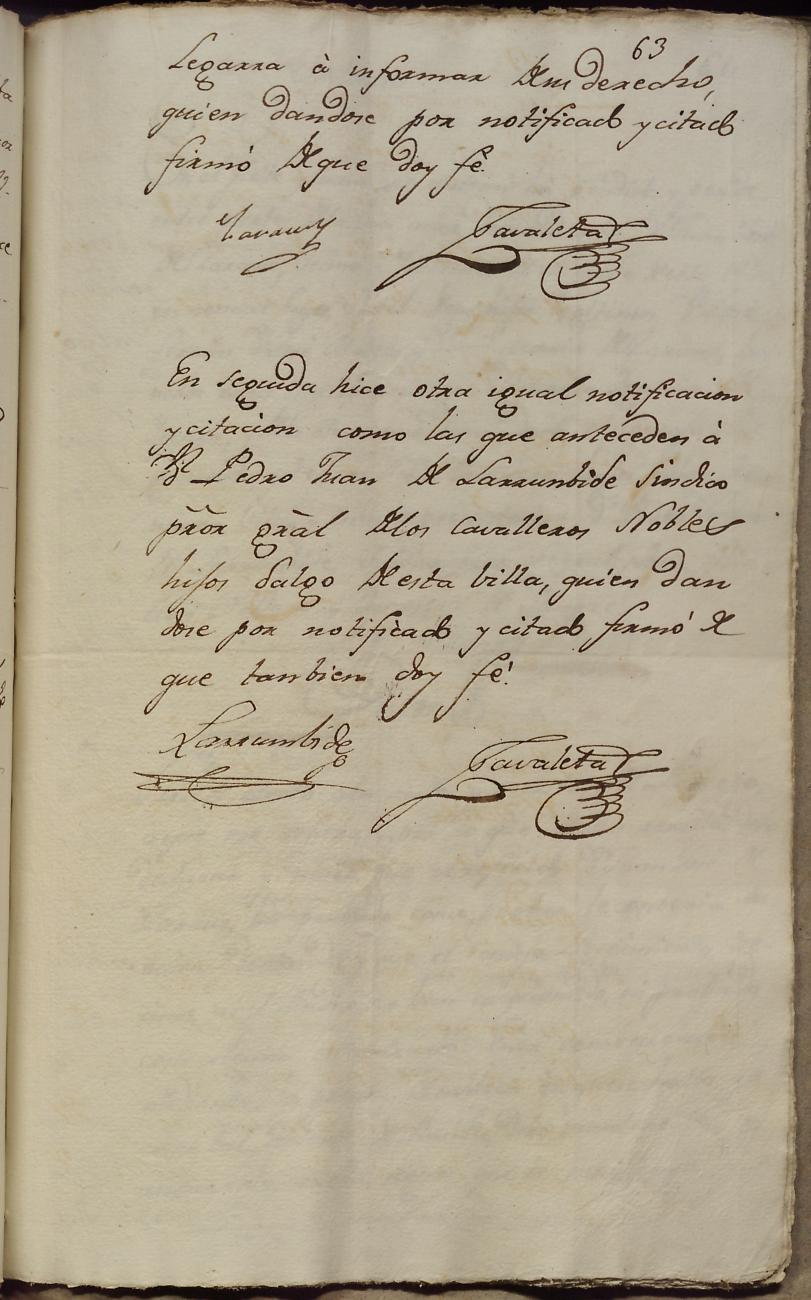 63
Legarra à informar de su derecho,
quien dandose por notificado y citado
firmó de que doy fê.
Zavaleta
En seguida hice otra igual notificacion
y citacion como las que anteceden à
Dn Pedro Juan de Larrumbide Sindico
prōr grāl de los Cavalleros Nobles
hijos dalgo de esta villa, quien dan
dose por notificado y citado firmó de
que tambien doy fé.
Larrumbide
Zavaleta